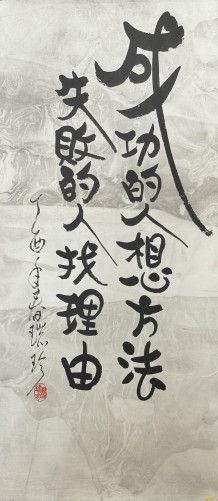 成功的人想方法
失败的人找理由
丁酉年